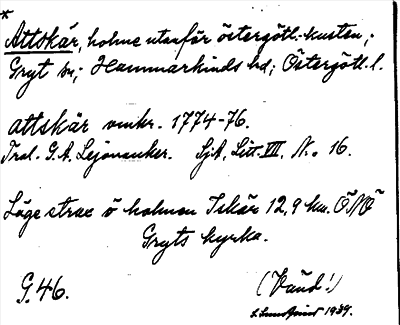 *
Attskär, holme utanför östergötl.-kusten,;
Gryt sn; Hammarkinds hd; Östergötl. l.
attskär omkr. 1774-76.
Tral. G. A. Lejonanker. SjA, Litt. VII, N:o 16.
Läge strax ö holmen Iskär 12,9 km. ÖNÖ
Gryts kyrka.
G. 46.
(Vänd!)
1939.